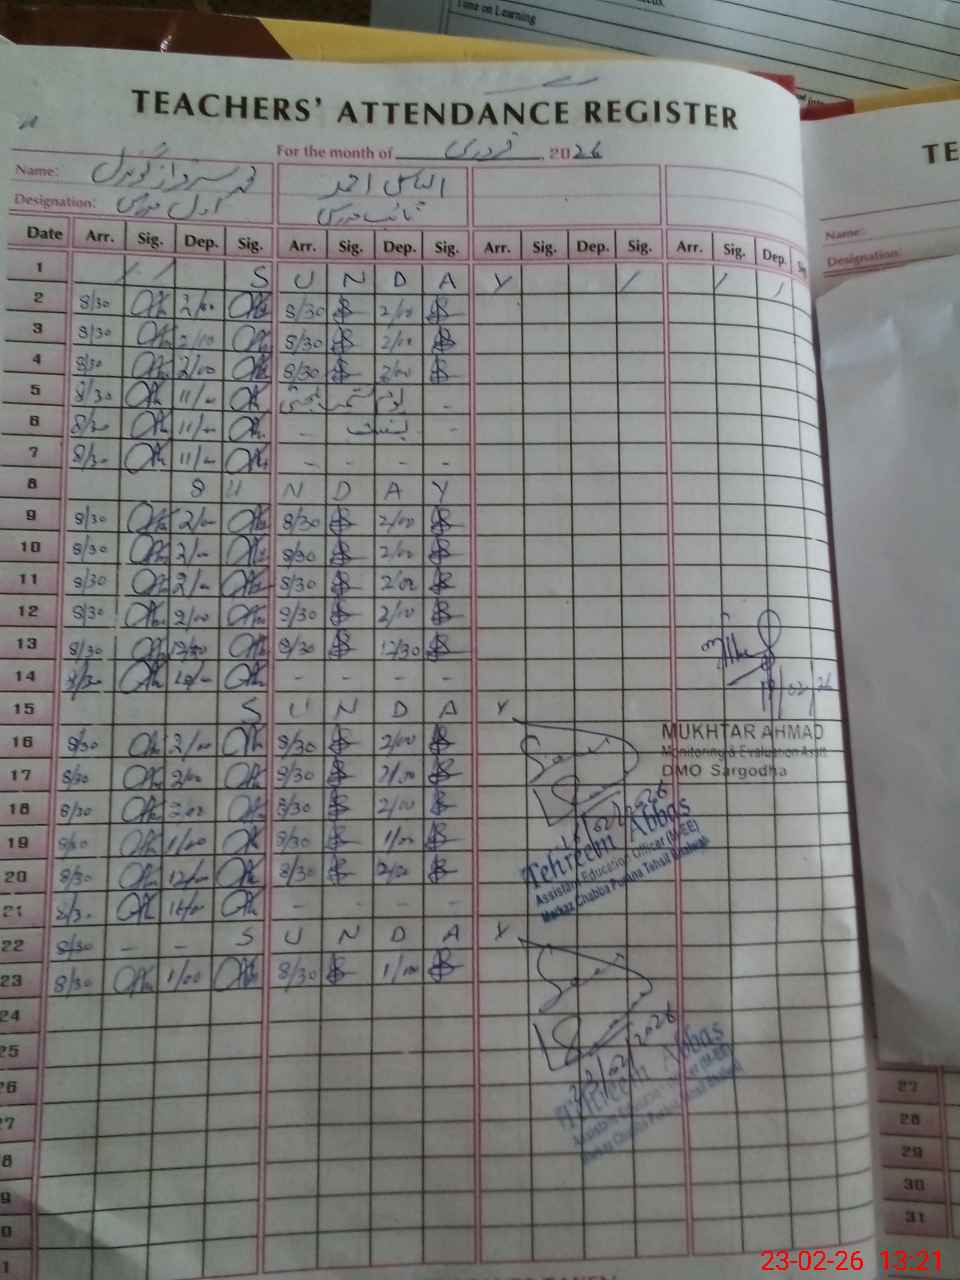 Time on Learning
TEACHERS' ATTENDANCE REGISTER
For the month of فروری 2026
Name: محمد سرفراز گوندل الیاس احمد
Designation: اول مدرس نائب مدرس
Date Arr. Sig. Dep. Sig. Arr. Sig. Dep. Sig. Arr. Sig. Dep. Sig. Arr. Sig. Dep. Sig
1 S U N D A Y
2 8/30 2/00 8/30 2/00
3 8/30 2/00 8/30 2/00
4 8/30 2/00 8/30 2/00
5 8/30 11/00 -
6 8/30 11/00 - -
7 8/30 11/00 - - - -
8 S U N D A Y
9 8/30 2/00 8/30 2/00
10 8/30 2/00 8/30 2/00
11 8/30 2/00 8/30 2/00
12 8/30 2/00 8/30 2/00
13 8/30 12/30 8/30 12/30
14 8/30 - - - -
15 S U N D A Y
16 8/30 2/00 8/30 2/00
17 8/30 2/00 8/30 2/00
18 8/30 2/00 8/30 2/00
19 8/30 1/00 8/30 1/00
20 8/30 12/00 8/30
21 8/30 - - - -
22 8/30 - - S U N D A Y
23 8/30 1/00 8/30 1/00
24
25
26
27
8
9
0
1
19/02/26
MUKHTAR AHMAD
Monitoring & Evaluation Asstt.
DMO Sargodha
Tehreem Abbas
Assistant Education Officer (W-EE)
Markaz Chabba Purana Tehsil Bhalwal
Tehreem Abbas
TE
Name:
Designation:
27
28
29
30
31
23-02-26 13:21